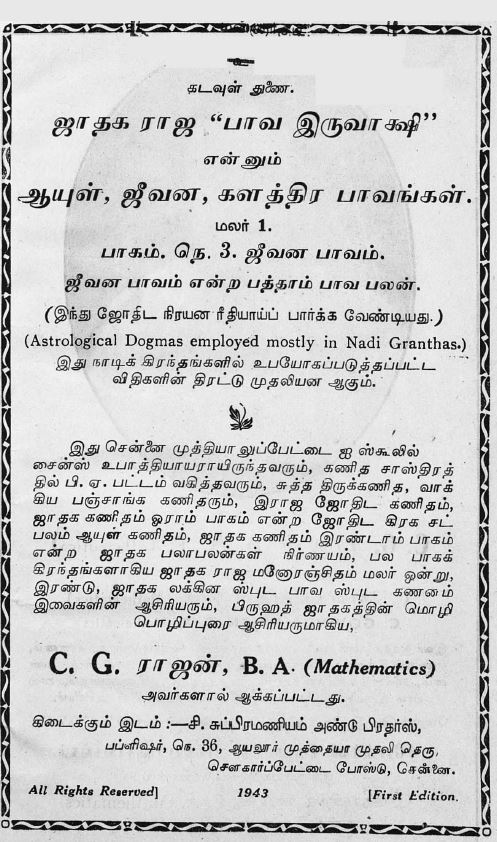 உ
கடவுள் துணை.
ஜாதக ராஜ “பாவ இருவாக்ஷி”
என்னும்
ஆயுள், ஜீவன, களத்திர பாவங்கள்.
மலர் 1.
பாகம். நெ. 3. ஜீவன பாவம்.
ஜீவன பாவம் என்ற பத்தாம் பாவ பலன்.
(இந்து ஜோதிட நிரயன ரீதியாய்ப் பார்க்க வேண்டியது.)
(Astrological Dogmas employed mostly in Nadi Granthas.)
இது நாடிக் கிரந்தங்களில் உபயோகப்படுத்தப்பட்ட
விதிகளின் திரட்டு முதலியன ஆகும்.
இது சென்னை முத்தியாலுப்பேட்டை ஐ ஸ்கூலில்
சைன்ஸ் உபாத்தியாயராயிருந்தவரும், கணித சாஸ்திரத்
தில் பி. ஏ. பட்டம் வகித்தவரும், சுத்த திருக்கணித, வாக்
கிய பஞ்சாங்க கணிதரும், இராஜ ஜோதிட கணிதம்,
ஜாதக கணிதம் ஓராம் பாகம் என்ற ஜோதிட கிரக சட்
பலம் ஆயுள் கணிதம், ஜாதக கணிதம் இரண்டாம் பாகம்
என்ற ஜாதக பலாபலன்கள் நிர்ணயம், பல பாகக்
கிரந்தங்களாகிய ஜாதக ராஜ மனோரஞ்சிதம் மலர் ஒன்று,
இரண்டு, ஜாதக லக்கின ஸ்புட பாவ ஸ்புட கணனம்
இவைகளின் ஆசிரியரும், பிருஹத் ஜாதகத்தின் மொழி
பொழிப்புரை ஆசிரியருமாகிய,
C. G. ராஜன், B. A. (Mathematics)
அவர்களால் ஆக்கப்பட்டது.
கிடைக்கும் இடம் :—சி. சுப்பிரமணியம் அண்டு பிரதர்ஸ்,
பப்ளிஷர், நெ. 36, ஆயலூர் முத்தையா முதலி தெரு,
சௌகார்ப்பேட்டை போஸ்டு, சென்னை.
All Rights Reserved] 1943 [First Edition.